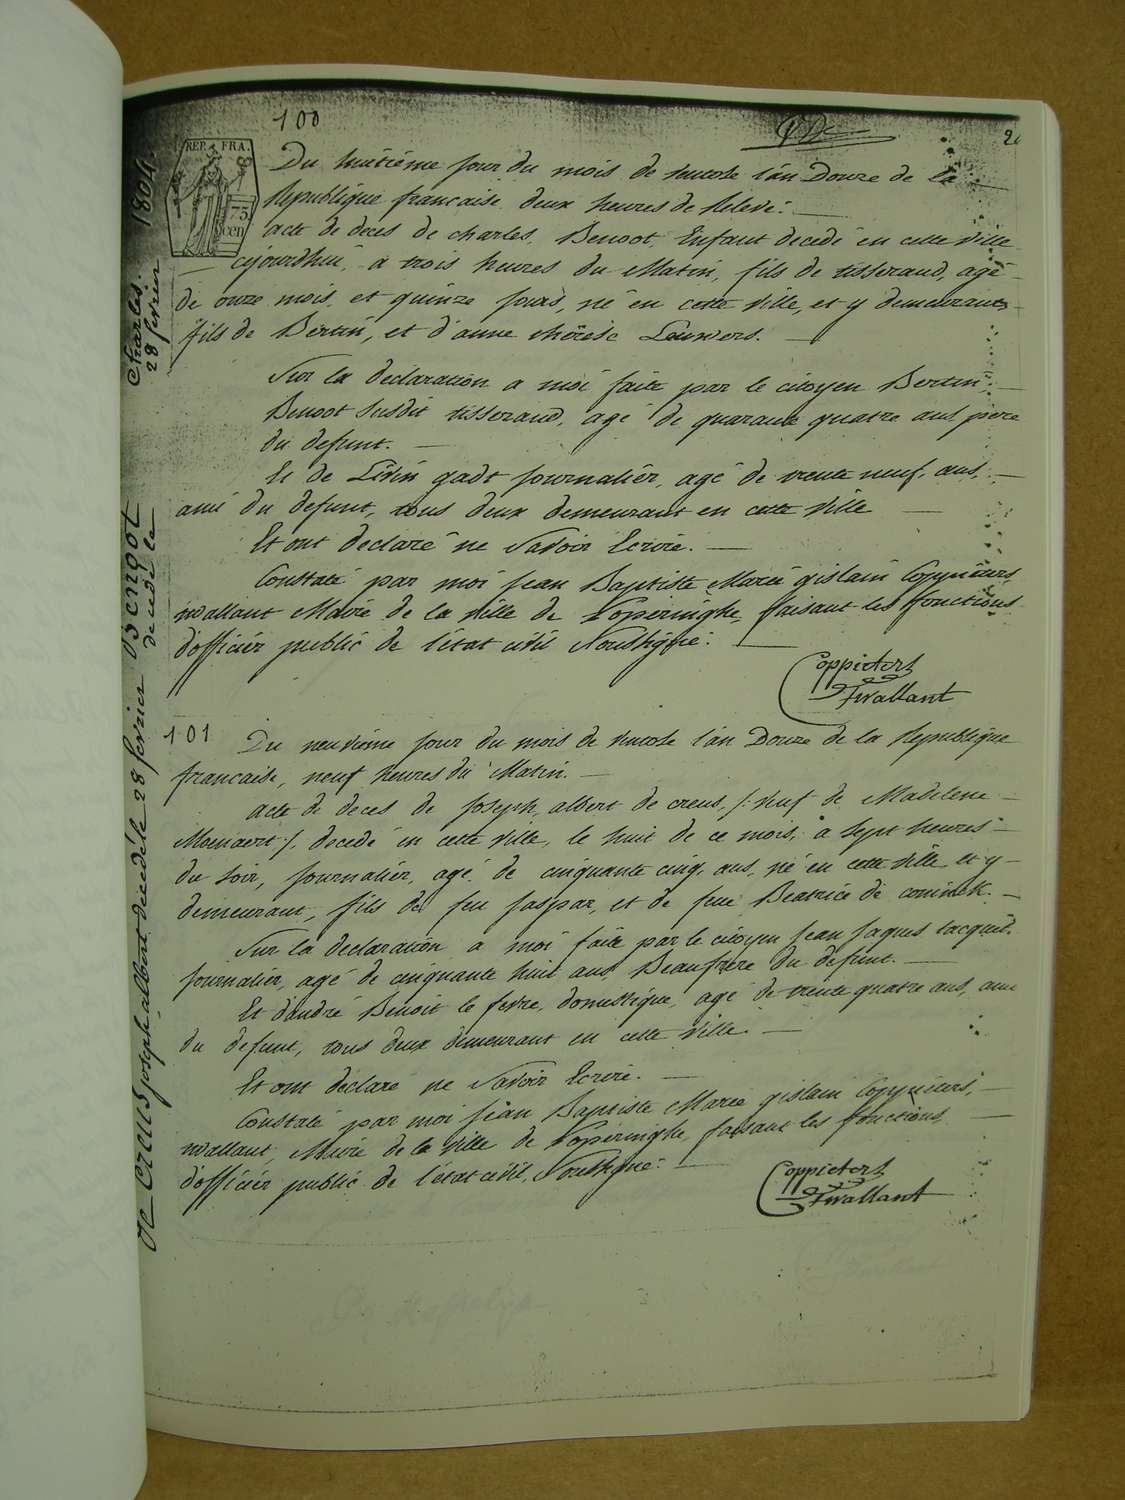 100
REP. FRA.
75
cen
Du huitiéme jour du mois de ventose l'an Douze de la
Republique francaise deux heures de Relevé.
acte de deces de charles Bengot, Enfant decedé en cette ville
cejourdhui, a trois heures du Matin, fils de tisserand, agé
de onze mois, et quinze jours, né en cette ville, et y demeurant,
fils de Bertin, et d'anne thérèse
Sur la declaration a moi faite par le citoyen Bertin,
Bengot susdit tisserand, agé de quarante quatre ans, pere
du defunt.
Et de Livin gadt journaliér, agé de trente neuf, ans,
ami du defunt, tous deux demeurant en cette ville
Et ont declaré ne Savoir Ecrire.
Constaté par moi Jean Baptiste Marie gislain Coppieters
wallant Maire de la ville de Poperinghe, faisant les fonctions
d'officiér public de l'état civil Soussigné.
Coppieters
Twallant
101
Du neuvieme jour du mois de ventose l'an Douze de la Republique
francaise, neuf heures du Matin.
acte de deces de joseph, albert de creus, /: veuf de Madelene
:/, decedé en cette ville, le huit de ce mois, a sept heures
du soir, journaliér, agé de cinquante cinq, ans, né en cette ville et y
demeurant, fils de feu jaspar, et de feue Beatrice de coninck.
Sur la declaration a moi faite par le citoyen jean jaques
journaliér, agé de cinquante huit ans, Beaufrere du defunt.
Et d'andré Benoit le fevre, domestique, agé de trente quatre ans, ami
du defunt, tous deux demeurant en cette ville.
Et ont declaré ne Savoir Ecrire.
Constaté par moi jean Baptiste Marie gislain Coppieters,
wallant, Maire de la ville de Poperinghe, faisant les fonctions
d'officiér public de l'état civil, Soussigné.
Coppieters
Twallant
Bengot Charles. 1804.
decedé le 28 fevrier
de Creus joseph, albert decedé le 28 fevrier